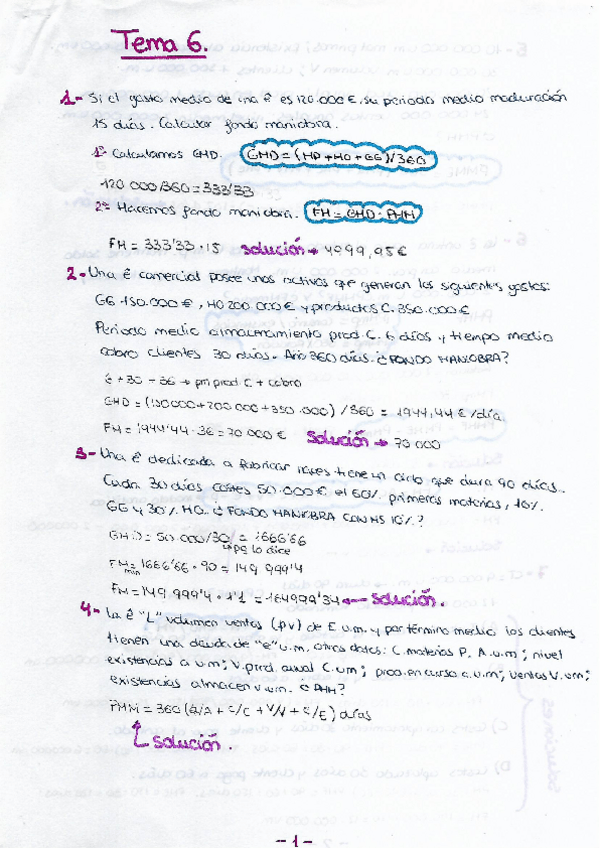 Tema 6.
1- Si el gasto medio de una ê es 120.000€, su periodo medio maduración
15 días. Calcular fondo maniobra.
1º Calculamos GMD. GMD = (MP+MO+GG)/360
120 000/360 = 333'33
2º Hacemos fondo maniobra. FM = GMD · PMM
FM = 333'33 · 15 solución → 4999,95€
2- Una ê comercial posee unos activos que generan los siguientes gastos:
GG 150.000€, MO 200.000€ y productos C. 350.000€
Periodo medio almacenamiento prod C. 6 días y tiempo medio
cobro clientes 30 días. Año 360 días. ¿FONDO MANIOBRA?
6 + 30 = 36 → pm prod C + cobro
GMD = (150000 + 200 000 + 350.000) / 360 = 1944,44 €/día
FM = 1944'44 · 36 = 70 000€ Solución → 70 000
3- Una ê dedicada a fabricar tiene un ciclo que dura 90 días.
Cada 30 días costes 50.000€ el 60% primeras materias, 10%
GG y 30% MO. ¿FONDO MANIOBRA CON MS 10%?
GMD = 50.000/30 = 1666'66
→ pq lo dice
FM min = 1666'66 · 90 = 149 999'4
FM = 149.999'4 · 1'1 = 164999'34 ← solución.
4- La ê "L" volumen ventas (pv) de E u.m. y por término medio los clientes
tienen una deuda de "e" u.m. otros datos: C. materias P. A.u.m; nivel
existencias a u.m; V. prod. anual C.um; prod. en curso c.u.m; ventas V.um;
existencias almacen v.um. ¿PMM?
PMM = 360 (a/A + c/C + v/V + e/E) días
solución.
-1-